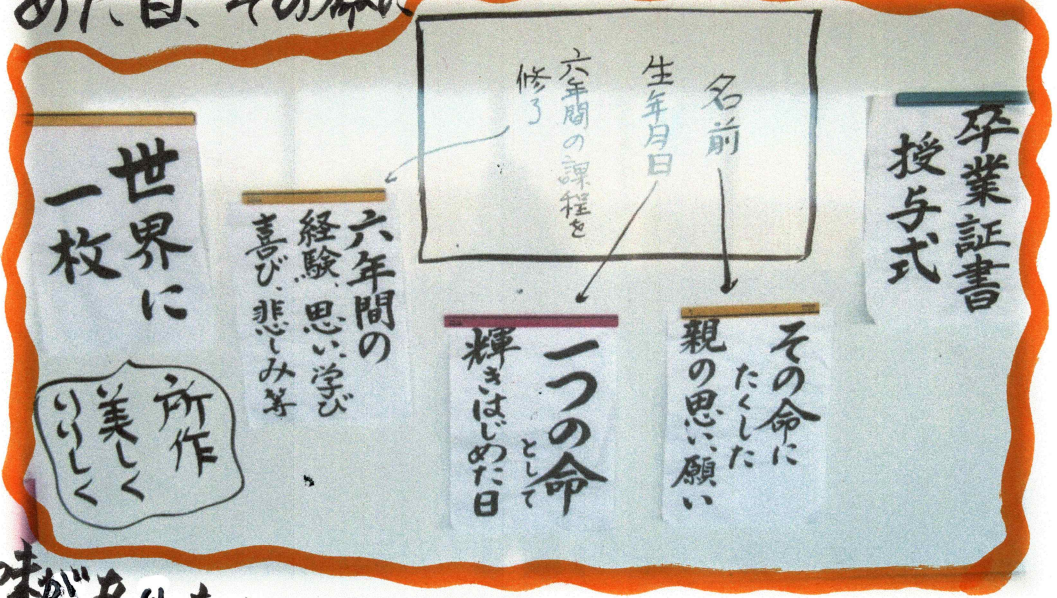 卒業証書
授与式
名前
生年月日
六年間の課程を
修了
その命に
たくした
親の思い、願い
一つの命
として
輝きはじめた日
六年間の
経験、思い、学び
喜び、悲しみ等
世界に
一枚
所作
美しく
りりしく
めた日、その命に
味が